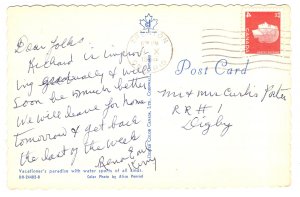 Dear Folks
Richard is improv
ing gradually & will
soon be much better
We will leave for home
tomorrow & get back
the last of the week
Vacationer's paradise with water sports of all kinds.
Color Photo by Alice
Post Card
CANADA
Mr & Mrs Curtis Porter
R R # 1
Digby